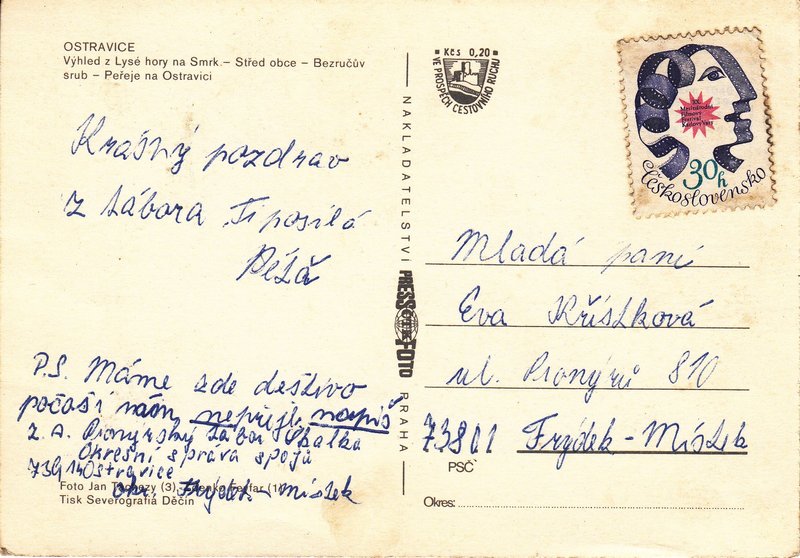 OSTRAVICE
Výhled z Lysé hory na Smrk – Střed obce – Bezručův
srub – Peřeje na Ostravici
Krásný pozdrav
z tábora Ti posílá
Péťa
P.S. Máme zde deštivo
počasí nám nepřeje napiš
z. A. Pionýrský tábor Skalka
Okresní správa spojů
73914 Ostravice
okr. Frýdek-Místek
Foto Jan Tachezy (3),
Tisk Severografia Děčín
Kčs 0,20
VE PROSPĚCH CESTOVNÍHO RUCHU
NAKLADATELSTVÍ
PRESSFOTO
PRAHA
XX.
Mezinárodní
Filmový
Festival
Karlovy Vary
30h
Československo
Mladá paní
Eva Křístková
ul. Pionýrů 810
73801 Frýdek-Místek
PSČ
Okres: